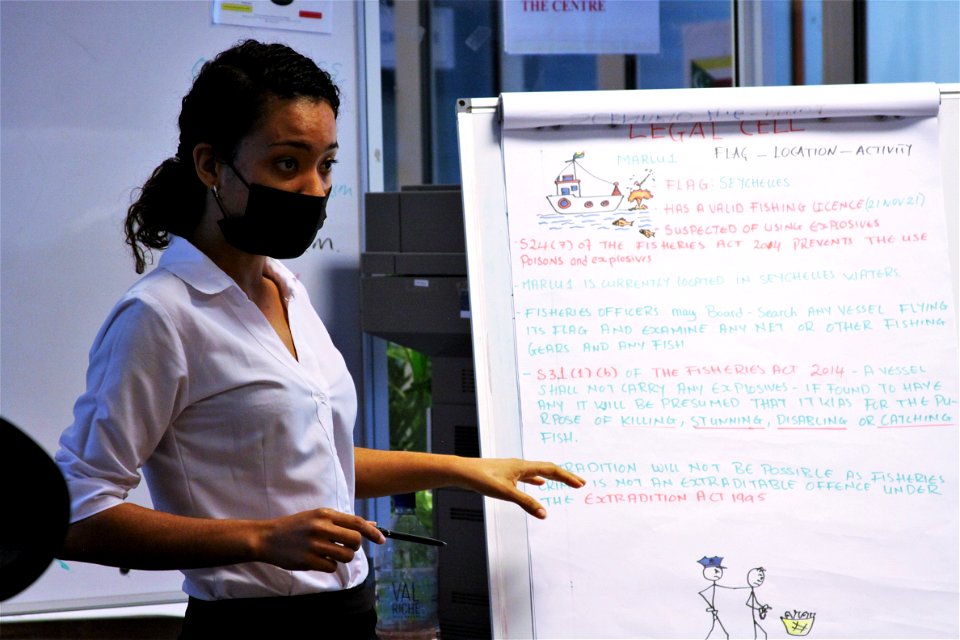 THE CENTRE
LEGAL CELL
MARLU 1 FLAG - LOCATION - ACTIVITY
FLAG: SEYCHELLES
HAS A VALID FISHING LICENCE (21 NOV 21)
SUSPECTED OF USING EXPLOSIVES
S24(7) OF THE FISHERIES ACT 2014 PREVENTS THE USE
POISONS and explosives
- MARLU 1 IS CURRENTLY LOCATED IN SEYCHELLES WATERS
- FISHERIES OFFICERS may Board - Search ANY VESSEL FLYING
ITS FLAG AND EXAMINE ANY NET OR OTHER FISHING
GEARS AND ANY FISH
- S31(1)(b) OF THE FISHERIES ACT 2014 - A VESSEL
SHALL NOT CARRY ANY EXPLOSIVES - IF FOUND TO HAVE
ANY IT WILL BE PRESUMED THAT IT WAS FOR THE PU-
RPOSE OF KILLING, STUNNING, DISABLING OR CATCHING
FISH.
WILL NOT BE POSSIBLE AS FISHERIES
IS NOT AN EXTRADITABLE OFFENCE UNDER
THE EXTRADITION ACT 1995
VAL
RICHE